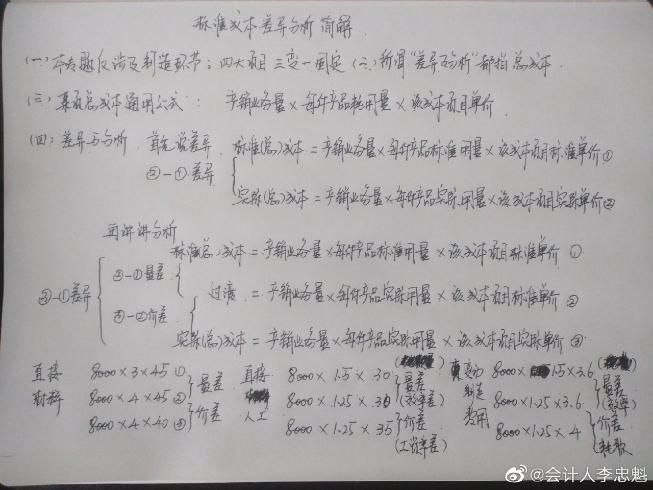 标准成本差异分析 简解
(一)本专题仅涉及制造环节;四大项目 三变一固定 (二)所谓“差异与分析”都指总成本.
(三)某项总成本通用公式: 产销业务量×每件产品耗用量×该成本项目单价
(四)差异与分析. 首先说差异 标准(总)成本=产销业务量×每件产品标准用量×该成本项目标准单价①
②-①差异 实际(总)成本=产销业务量×每件产品实际用量×该成本项目实际单价②
再讲讲分析
标准(总)成本=产销业务量×每件产品标准用量×该成本项目标准单价 ①
③-①差异 ②-①量差 过渡 =产销业务量×每件产品实际用量×该成本项目标准单价 ②
③-②价差
实际(总)成本=产销业务量×每件产品实际用量×该成本项目实际单价③
直接 8000×3×45① 直接 8000×1.5×30 变动 8000×1.5×3.6
材料 8000×4×45② 量差 8000×1.25×30 量差 (效率差) 制造 8000×1.25×3.6 量差 (效率)
8000×4×40③ 价差 人工 8000×1.25×35 价差 (工资率差) 费用 8000×1.25×4 价差 (耗费)
@会计人李忠魁